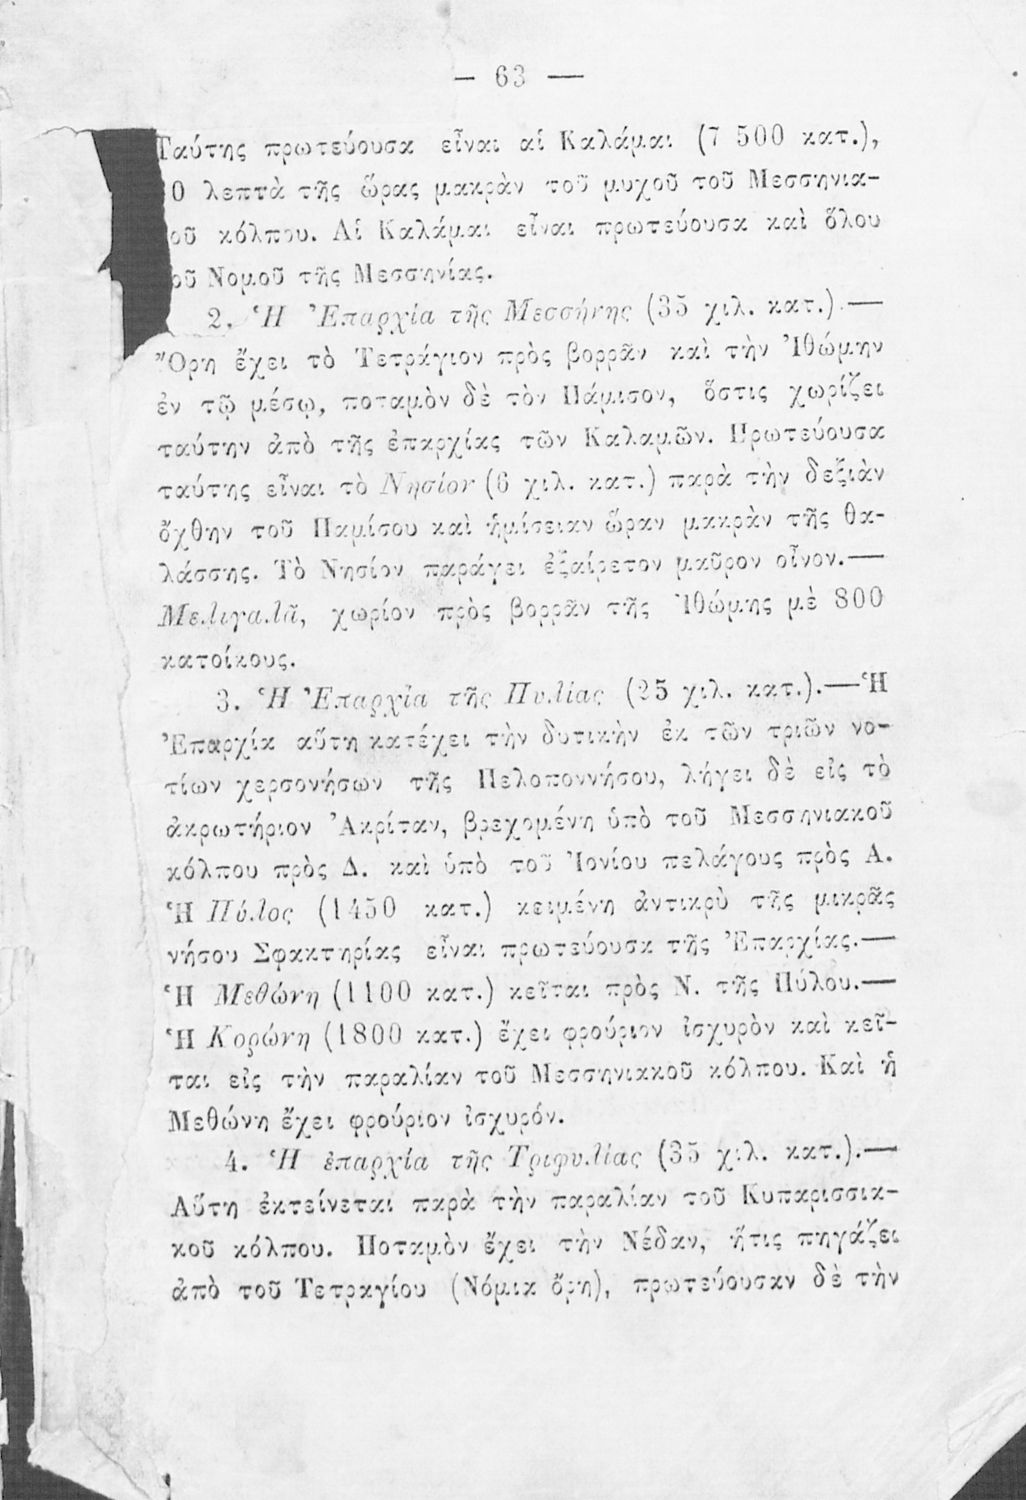 — 63 —
Ταύτης πρωτεύουσα εἶναι αἱ Καλάμαι (7 500 κατ.),
0 λεπτὰ τῆς ὥρας μακρὰν τοῦ μυχοῦ τοῦ Μεσσηνια-
οῦ κόλπου. Αἱ Καλάμαι εἶναι πρωτεύουσα καὶ ὅλου
οῦ Νομοῦ τῆς Μεσσηνίας.
2. Ἡ Ἐπαρχία τῆς Μεσσήνης (35 χιλ. κατ.).—
Ὄρη ἔχει τὸ Τετράγιον πρὸς βορρᾶν καὶ τὴν Ἰθώμην
ἐν τῷ μέσῳ, ποταμὸν δὲ τὸν Πάμισον, ὅστις χωρίζει
ταύτην ἀπὸ τῆς ἐπαρχίας τῶν Καλαμῶν. Πρωτεύουσα
ταύτης εἶναι τὸ Νησίον (6 χιλ. κατ.) παρὰ τὴν δεξιὰν
ὄχθην τοῦ Παμίσου καὶ ἡμίσειαν ὥραν μακρὰν τῆς θα-
λάσσης. Τὸ Νησίον παράγει ἐξαίρετον μαῦρον οἶνον.—
Μελιγαλᾶ, χωρίον πρὸς βορρᾶν τῆς Ἰθώμης μὲ 800
κατοίκους.
3. Ἡ Ἐπαρχία τῆς Πυλίας (25 χιλ. κατ.).—Ἡ
Ἐπαρχία αὕτη κατέχει τὴν δυτικὴν ἐκ τῶν τριῶν νο-
τίων χερσονήσων τῆς Πελοποννήσου, λήγει δὲ εἰς τὸ
ἀκρωτήριον Ἀκρίταν, βρεχομένη ὑπὸ τοῦ Μεσσηνιακοῦ
κόλπου πρὸς Δ. καὶ ὑπὸ τοῦ Ἰονίου πελάγους πρὸς Α.
Ἡ Πύλος (1450 κατ.) κειμένη ἀντικρὺ τῆς μικρᾶς
νήσου Σφακτηρίας εἶναι πρωτεύουσα τῆς Ἐπαρχίας.—
Ἡ Μεθώνη (1100 κατ.) κεῖται πρὸς Ν. τῆς Πύλου.—
Ἡ Κορώνη (1800 κατ.) ἔχει φρούριον ἰσχυρὸν καὶ κεῖ-
ται εἰς τὴν παραλίαν τοῦ Μεσσηνιακοῦ κόλπου. Καὶ ἡ
Μεθώνη ἔχει φρούριον ἰσχυρόν.
4. Ἡ ἐπαρχία τῆς Τριφυλίας (35 χιλ. κατ.).—
Αὕτη ἐκτείνεται παρὰ τὴν παραλίαν τοῦ Κυπαρισσια-
κοῦ κόλπου. Ποταμὸν ἔχει τὴν Νέδαν, ἥτις πηγάζει
ἀπὸ τοῦ Τετραγίου (Νόμια ὄρη), πρωτεύουσαν δὲ τὴν